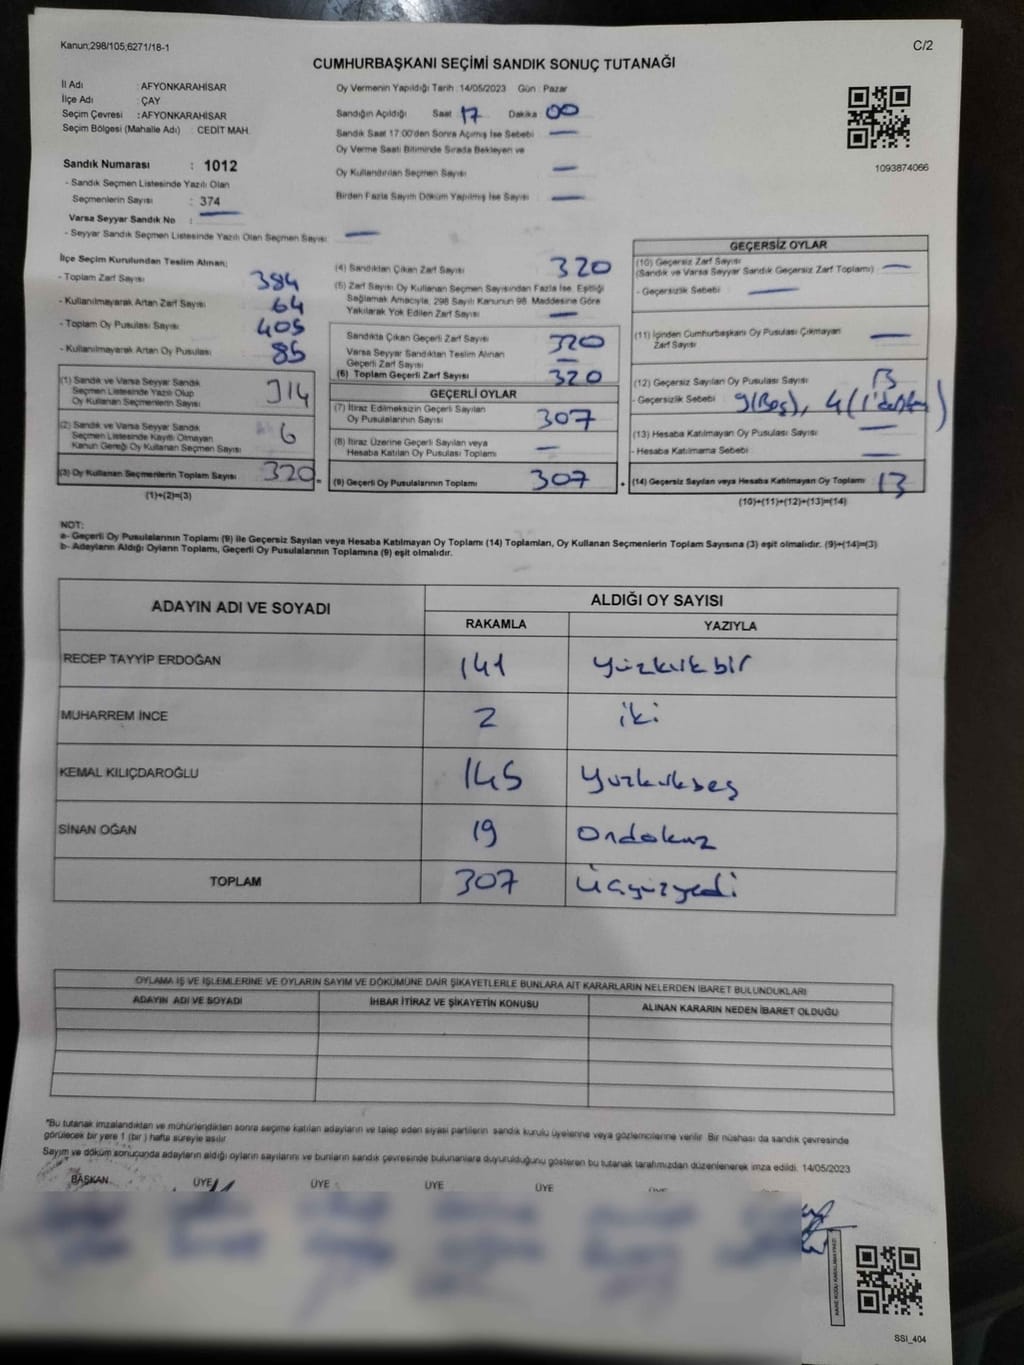 Kanun;298/105;6271/18-1
C/2
CUMHURBAŞKANI SEÇİMİ SANDIK SONUÇ TUTANAĞI
İl Adı : AFYONKARAHİSAR
İlçe Adı : ÇAY
Seçim Çevresi : AFYONKARAHİSAR
Seçim Bölgesi (Mahalle Adı) : CEDİT MAH.
Sandık Numarası : 1012
- Sandık Seçmen Listesinde Yazılı Olan
Seçmenlerin Sayısı : 374
Varsa Seyyar Sandık No : —
- Seyyar Sandık Seçmen Listesinde Yazılı Olan Seçmen Sayısı: —
Oy Vermenin Yapıldığı Tarih :14/05/2023 Gün : Pazar
Sandığın Açıldığı Saat 17 Dakika 00
Sandık Saat 17:00'den Sonra Açılmış İse Sebebi —
Oy Verme Saati Bitiminde Sırada Bekleyen ve
Oy Kullandırılan Seçmen Sayısı —
Birden Fazla Sayım Döküm Yapılmış İse Sayısı —
1093874066
İlçe Seçim Kurulundan Teslim Alınan;
- Toplam Zarf Sayısı 384
- Kullanılmayarak Artan Zarf Sayısı 64
- Toplam Oy Pusulası Sayısı 405
- Kullanılmayarak Artan Oy Pusulası 85
(1) Sandık ve Varsa Seyyar Sandık
Seçmen Listesinde Yazılı Olup
Oy Kullanan Seçmenlerin Sayısı 314
(2) Sandık ve Varsa Seyyar Sandık
Seçmen Listesinde Kayıtlı Olmayan
Kanun Gereği Oy Kullanan Seçmen Sayısı 6
(3) Oy Kullanan Seçmenlerin Toplam Sayısı 320
(1)+(2)=(3)
(4) Sandıktan Çıkan Zarf Sayısı 320
(5) Zarf Sayısı Oy Kullanan Seçmen Sayısından Fazla İse, Eşitliği
Sağlamak Amacıyla, 298 Sayılı Kanunun 98. Maddesine Göre
Yakılarak Yok Edilen Zarf Sayısı —
Sandıkta Çıkan Geçerli Zarf Sayısı 320
Varsa Seyyar Sandıktan Teslim Alınan
Geçerli Zarf Sayısı —
(6) Toplam Geçerli Zarf Sayısı 320
GEÇERLİ OYLAR
(7) İtiraz Edilmeksizin Geçerli Sayılan
Oy Pusulalarının Sayısı 307
(8) İtiraz Üzerine Geçerli Sayılan veya
Hesaba Katılan Oy Pusulası Toplamı —
(9) Geçerli Oy Pusulalarının Toplamı 307
GEÇERSİZ OYLAR
(10) Geçersiz Zarf Sayısı
(Sandık ve Varsa Seyyar Sandık Geçersiz Zarf Toplamı) —
- Geçersizlik Sebebi : —
(11) İçinden Cumhurbaşkanı Oy Pusulası Çıkmayan
Zarf Sayısı —
(12) Geçersiz Sayılan Oy Pusulası Sayısı 13
- Geçersizlik Sebebi 9(Boş), 4(
(13) Hesaba Katılmayan Oy Pusulası Sayısı —
- Hesaba Katılmama Sebebi —
(14) Geçersiz Sayılan veya Hesaba Katılmayan Oy Toplamı 13
(10)+(11)+(12)+(13)=(14)
NOT:
a- Geçerli Oy Pusulalarının Toplamı (9) ile Geçersiz Sayılan veya Hesaba Katılmayan Oy Toplamı (14) Toplamları, Oy Kullanan Seçmenlerin Toplam Sayısına (3) eşit olmalıdır. (9)+(14)=(3)
b- Adayların Aldığı Oyların Toplamı, Geçerli Oy Pusulalarının Toplamına (9) eşit olmalıdır.
ADAYIN ADI VE SOYADI ALDIĞI OY SAYISI
RAKAMLA YAZIYLA
RECEP TAYYİP ERDOĞAN 141 yüzkırkbir
MUHARREM İNCE 2 iki
KEMAL KILIÇDAROĞLU 145 yüzkırkbeş
SİNAN OĞAN 19 ondokuz
TOPLAM 307 üçyüzyedi
OYLAMA İŞ VE İŞLEMLERİNE VE OYLARIN SAYIM VE DÖKÜMÜNE DAİR ŞİKAYETLERLE BUNLARA AİT KARARLARIN NELERDEN İBARET BULUNDUKLARI
ADAYIN ADI VE SOYADI İHBAR İTİRAZ VE ŞİKAYETİN KONUSU ALINAN KARARIN NEDEN İBARET OLDUĞU
*Bu tutanak imzalandıktan ve mühürlendikten sonra seçime katılan adayların ve talep eden siyasi partilerin sandık kurulu üyelerine veya gözlemcilerine verilir. Bir nüshası da sandık çevresinde
görülecek bir yere 1 (bir ) hafta süreyle asılır.
Sayım ve döküm sonucunda adayların aldığı oyların sayılarını ve bunların sandık çevresinde bulunanlara duyurulduğunu gösteren bu tutanak tarafımızdan düzenlenerek imza edildi. 14/05/2023
BAŞKAN ÜYE ÜYE ÜYE ÜYE ÜYE ÜYE
SSI_404